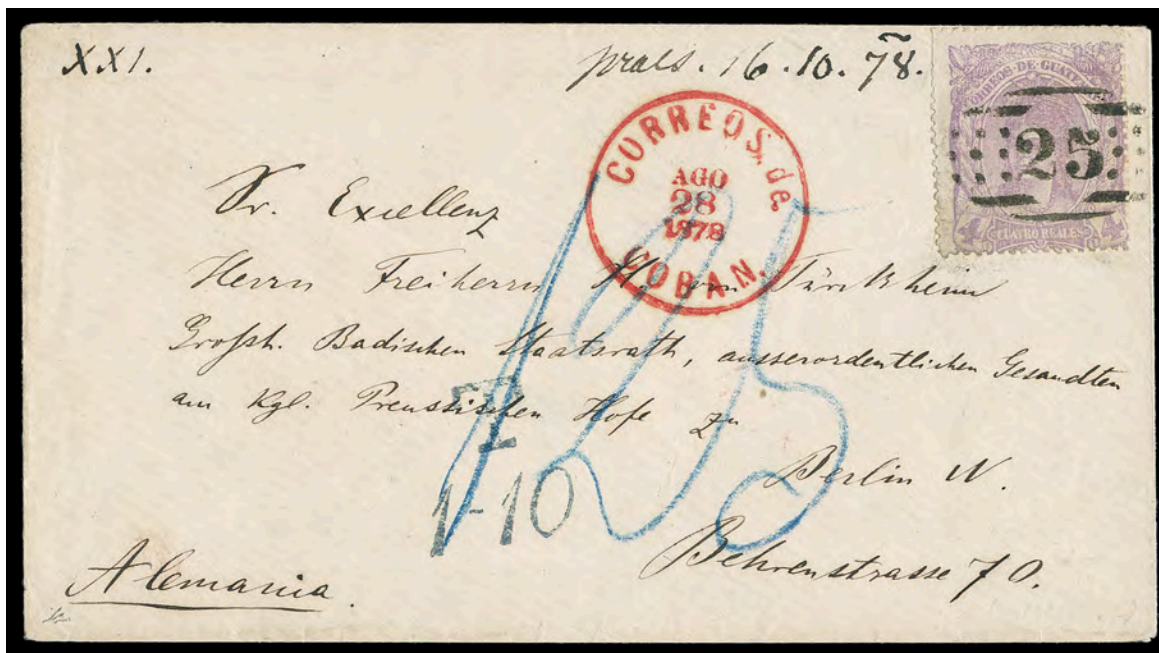 XXI.
praes. 16.10.78.
CORREOS DE GUATEMALA
25
4 CUATRO REALES 4
CORREOS. de.
AGO
28
1878
COBAN.
Sr. Excellenz
Herrn Freiherrn H. von Türckheim
Grossh. Badischen Staatsrath, ausserordentlichen Gesandten
am Kgl. Preussischen Hofe zu
Berlin W.
Behrenstrasse 70.
T
1-10
125
Alemania.